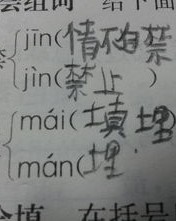 会组词 给下面
jīn(情不自禁
jìn(禁止 )
mái(填埋)
mán(埋
会填 在括号